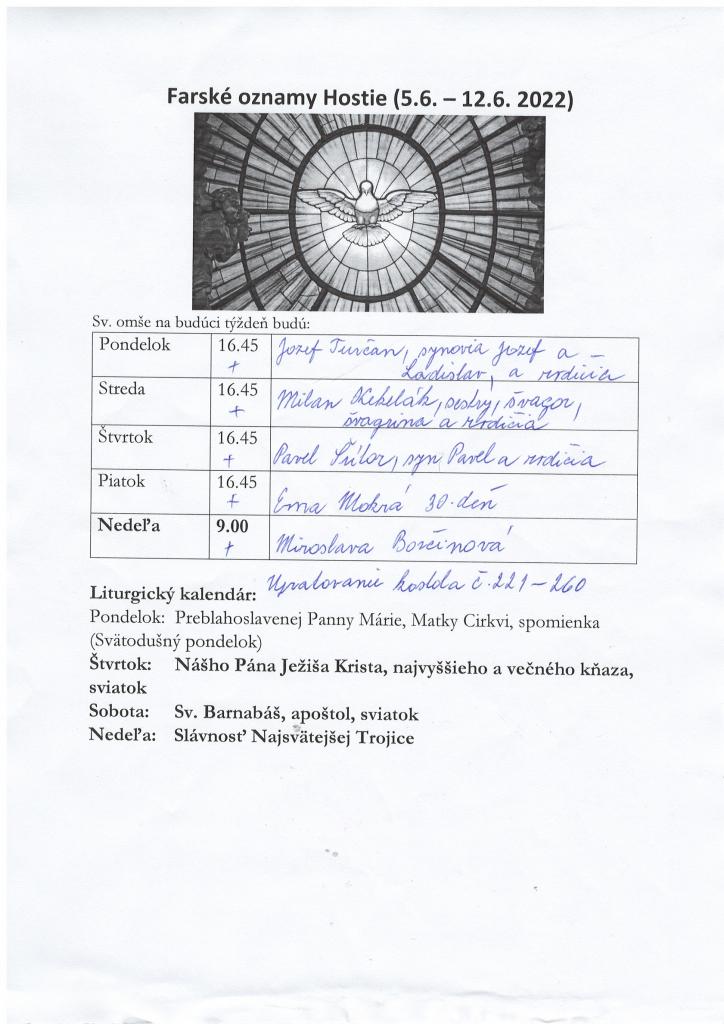 Farské oznamy Hostie (5.6. – 12.6. 2022)
Sv. omše na budúci týždeň budú:
Pondelok 16.45 + Jozef Turčan, synovia Jozef a –
Ladislav, a rodičia
Streda 16.45 + Milan Kekelák, sestry, švagor,
švagrina a rodičia
Štvrtok 16.45 + Pavel syn Pavel a rodičia
Piatok 16.45 + Ema Mokrá 30. deň
Nedeľa 9.00 + Miroslava Borčinová
Upratovanie kostola č. 221 – 260
Liturgický kalendár:
Pondelok: Preblahoslavenej Panny Márie, Matky Cirkvi, spomienka
(Svätodušný pondelok)
Štvrtok: Nášho Pána Ježiša Krista, najvyššieho a večného kňaza,
sviatok
Sobota: Sv. Barnabáš, apoštol, sviatok
Nedeľa: Slávnosť Najsvätejšej Trojice